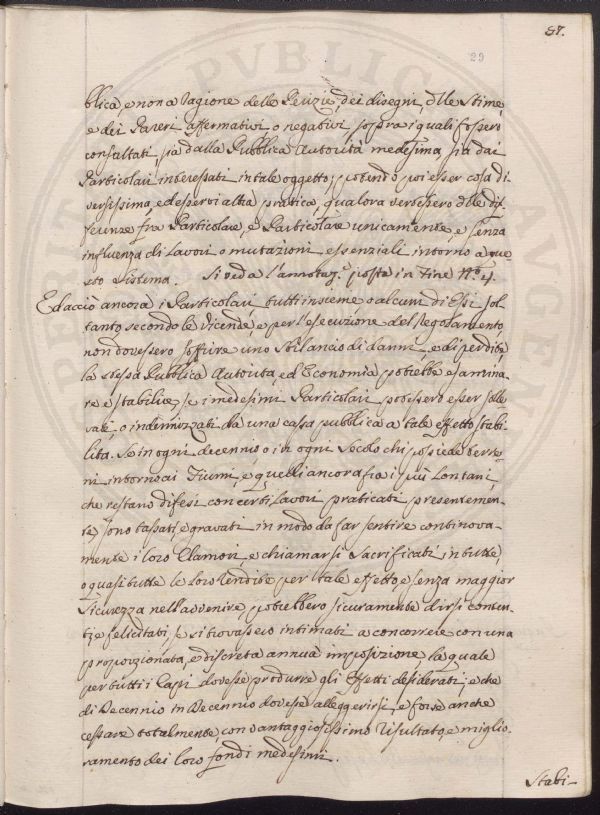 87.
29
blica, e non a ragione delle Perizie, dei disegni, delle stime,
e dei Pareri affermativi o negativi sopra i quali fossero
consultati sia dalla Pubblica Autorità medesima, sia dai
Particolari interessati in tale oggetto; potendo poi esser cosa di-
versissima, ed esservi altra pratica, qualora versassero delle dif-
ferenze fra Particolare, e Particolare unicamente, e senza
influenza di Lavori o mutazioni essenziali intorno a que-
sto sistema. Si veda l'annotaz.e posta in fine N.o 4.
Ed acciò ancora i Particolari tutti insieme o alcuni di Essi sol-
tanto, secondo le vicende, e per l'esecuzione del Regolamento
non dovessero soffrire uno sbilancio di danni, e di perdite
la stessa Pubblica Autorità, ed Economia potrebbe esamina-
re e stabilire, se i medesimi Particolari potessero esser solle-
vati, o indennizzati da una cassa pubblica a tale effetto stabi-
lita. Se in ogni decennio o in ogni Secolo chi possiede terre-
ni intorno ai Fiumi, e quelli ancora fra i più Lontani,
che restano difesi con certi Lavori praticati presentemen-
te, sono tassati, e gravati in modo da far sentire continova-
mente i loro Clamori, e chiamarsi Sacrificati in tutte,
o quasi tutte le loro rendite per tale effetto e senza maggior
sicurezza nell'avvenire, potrebbero sicuramente dirsi conten-
ti, e felicitati, se si trovassero intimati a concorrere con una
proporzionata, e discreta annua imposizione la quale
per tutti i Capi dovesse produrre gli Effetti desiderati; e che
di Decennio in Decennio dovesse alleggerirsi, e forse anche
cessare totalmente, con vantaggiosissimo risultato, e miglio-
ramento dei loro fondi medesimi.
Stabi-
PUBLICA